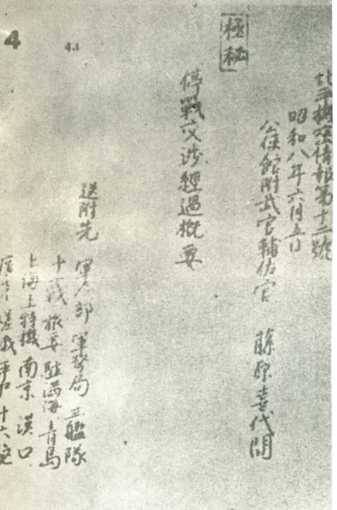 極秘
北平機密情報第十二號
昭和八年六月五日
公使館附武官輔佐官 藤原喜代間
停戰交渉經過概要
送附先 軍令部 軍務局 三艦隊
十一戰 旅要 駐滿海 青島
上海 特機 南京 漢口
4
4.1